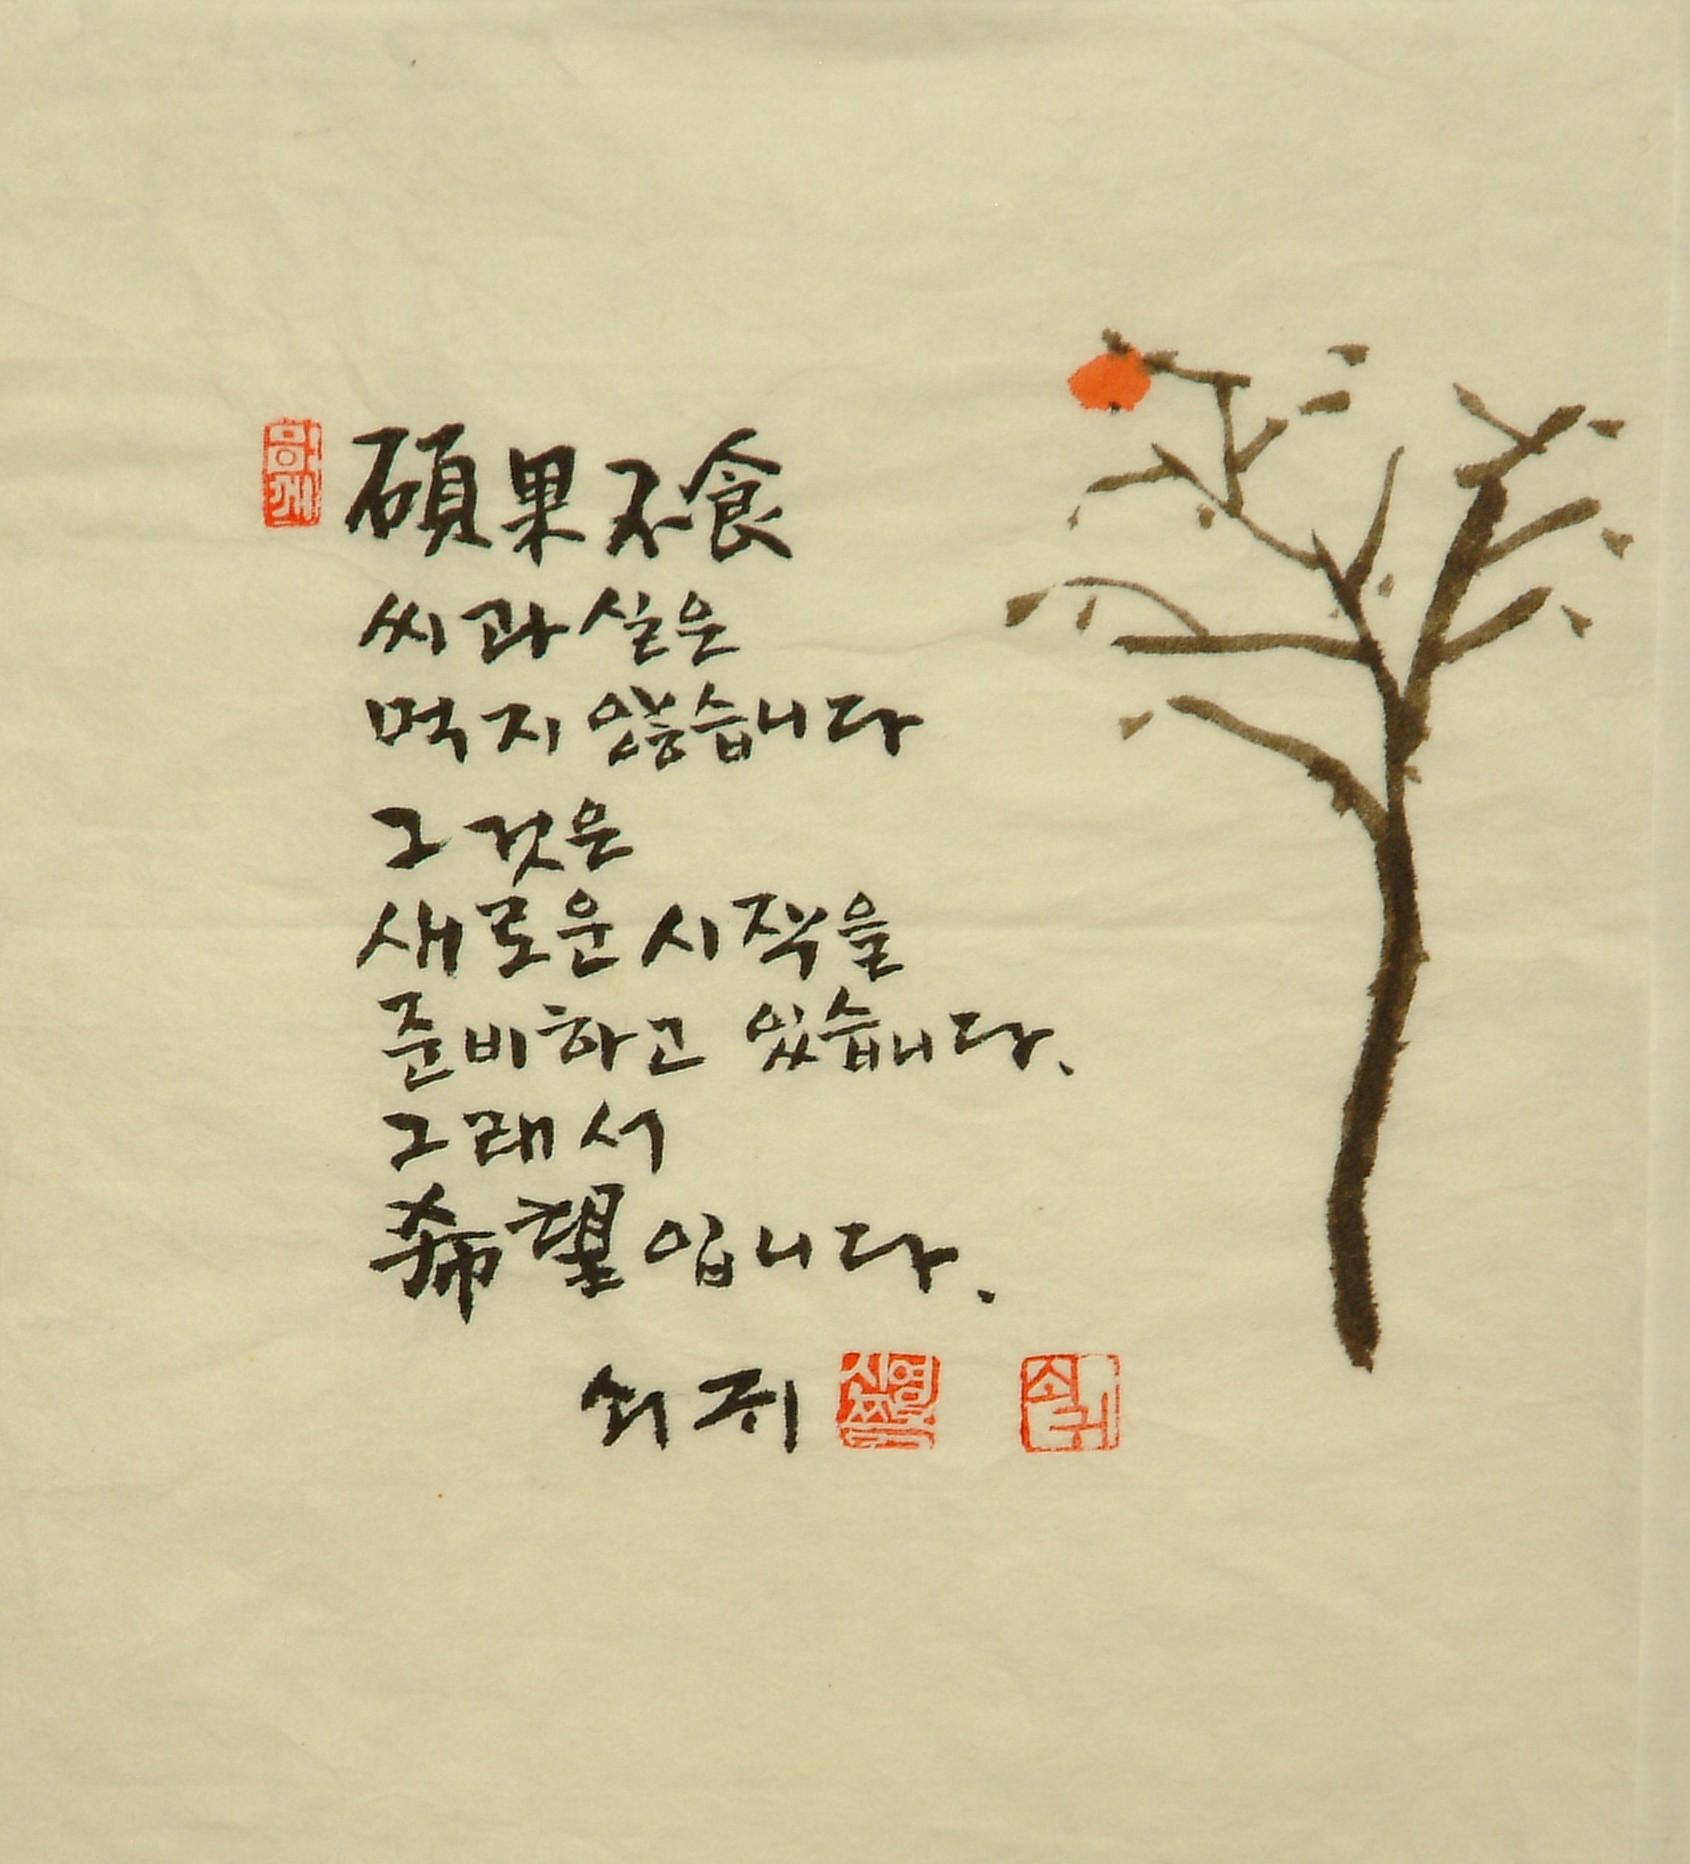 함께
碩果不食
씨과실은
먹지 않습니다
그것은
새로운 시작을
준비하고 있습니다.
그래서
希望입니다.
쇠귀
쇠귀